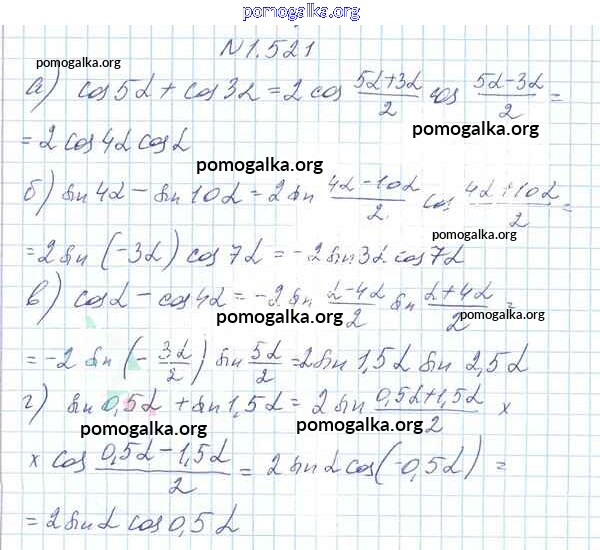 pomogalka.org
N 1.521
pomogalka.org
а) cos 5α + cos 3α = 2 cos (5α+3α)/2 cos (5α-3α)/2 =
pomogalka.org
= 2 cos 4α cos α
pomogalka.org
б) sin 4α - sin 10α = 2 sin (4α-10α)/2 cos (4α+10α)/2 =
pomogalka.org
= 2 sin (-3α) cos 7α = -2 sin 3α cos 7α
в) cos α - cos 4α = -2 sin (α-4α)/2 sin (α+4α)/2 =
pomogalka.org pomogalka.org
= -2 sin (-3α/2) sin 5α/2 = 2 sin 1,5α sin 2,5α
pomogalka.org
г) sin 0,5α + sin 1,5α = 2 sin (0,5α+1,5α)/2 x
pomogalka.org pomogalka.org
x cos (0,5α-1,5α)/2 = 2 sin α cos (-0,5α) =
pomogalka.org
= 2 sin α cos 0,5α